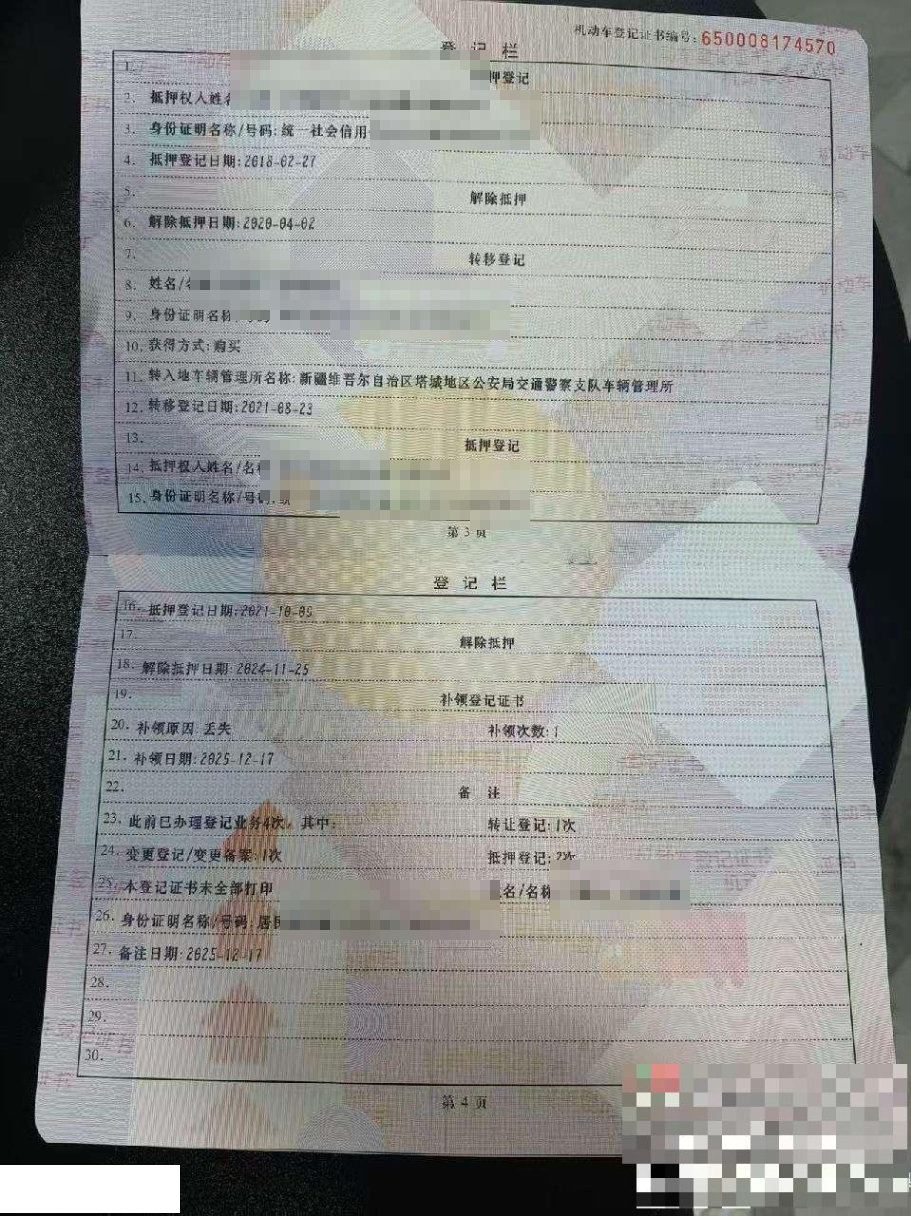 机动车登记证书编号:650008174570
登记栏
1. 押登记
2. 抵押权人姓名
3. 身份证明名称/号码:统一社会信用
4. 抵押登记日期:2018-02-27
5. 解除抵押
6. 解除抵押日期:2020-04-02
7. 转移登记
8. 姓名/
9. 身份证明名称
10. 获得方式:购买
11. 转入地车辆管理所名称:新疆维吾尔自治区塔城地区公安局交通警察支队车辆管理所
12. 转移登记日期:2021-08-23
13. 抵押登记
14. 抵押权人姓名/名称
15. 身份证明名称/号码:
第 3 页
登记栏
16. 抵押登记日期:2021-10-09
17. 解除抵押
18. 解除抵押日期:2024-11-25
19. 补领登记证书
20. 补领原因:丢失 补领次数:1
21. 补领日期:2025-12-17
22. 备 注
23. 此前已办理登记业务4次, 其中: 转让登记:1次
24. 变更登记/变更备案:1次 抵押登记:2次
25. 本登记证书未全部打印 名/名称
26. 身份证明名称/号码:居民
27. 备注日期:2025-12-17
28.
29.
30.
第 4 页